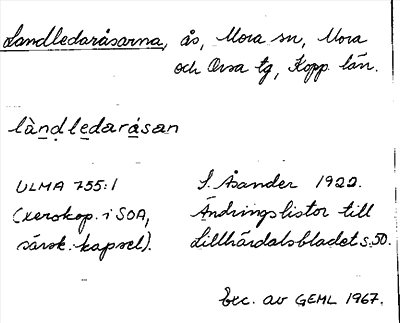 Landledaråsarna, ås, Mora sn, Mora
och Orsa tg, Kopp. län.
là̱ṉdḻe̱daråsa̱n
ULMA 755:1
(xerokop. i SOA,
särsk. kapsel).
S. Åsander 1922.
Ändringslistor till
Lillhärdalsbladet s. 50.
Exc. av GEML 1967.